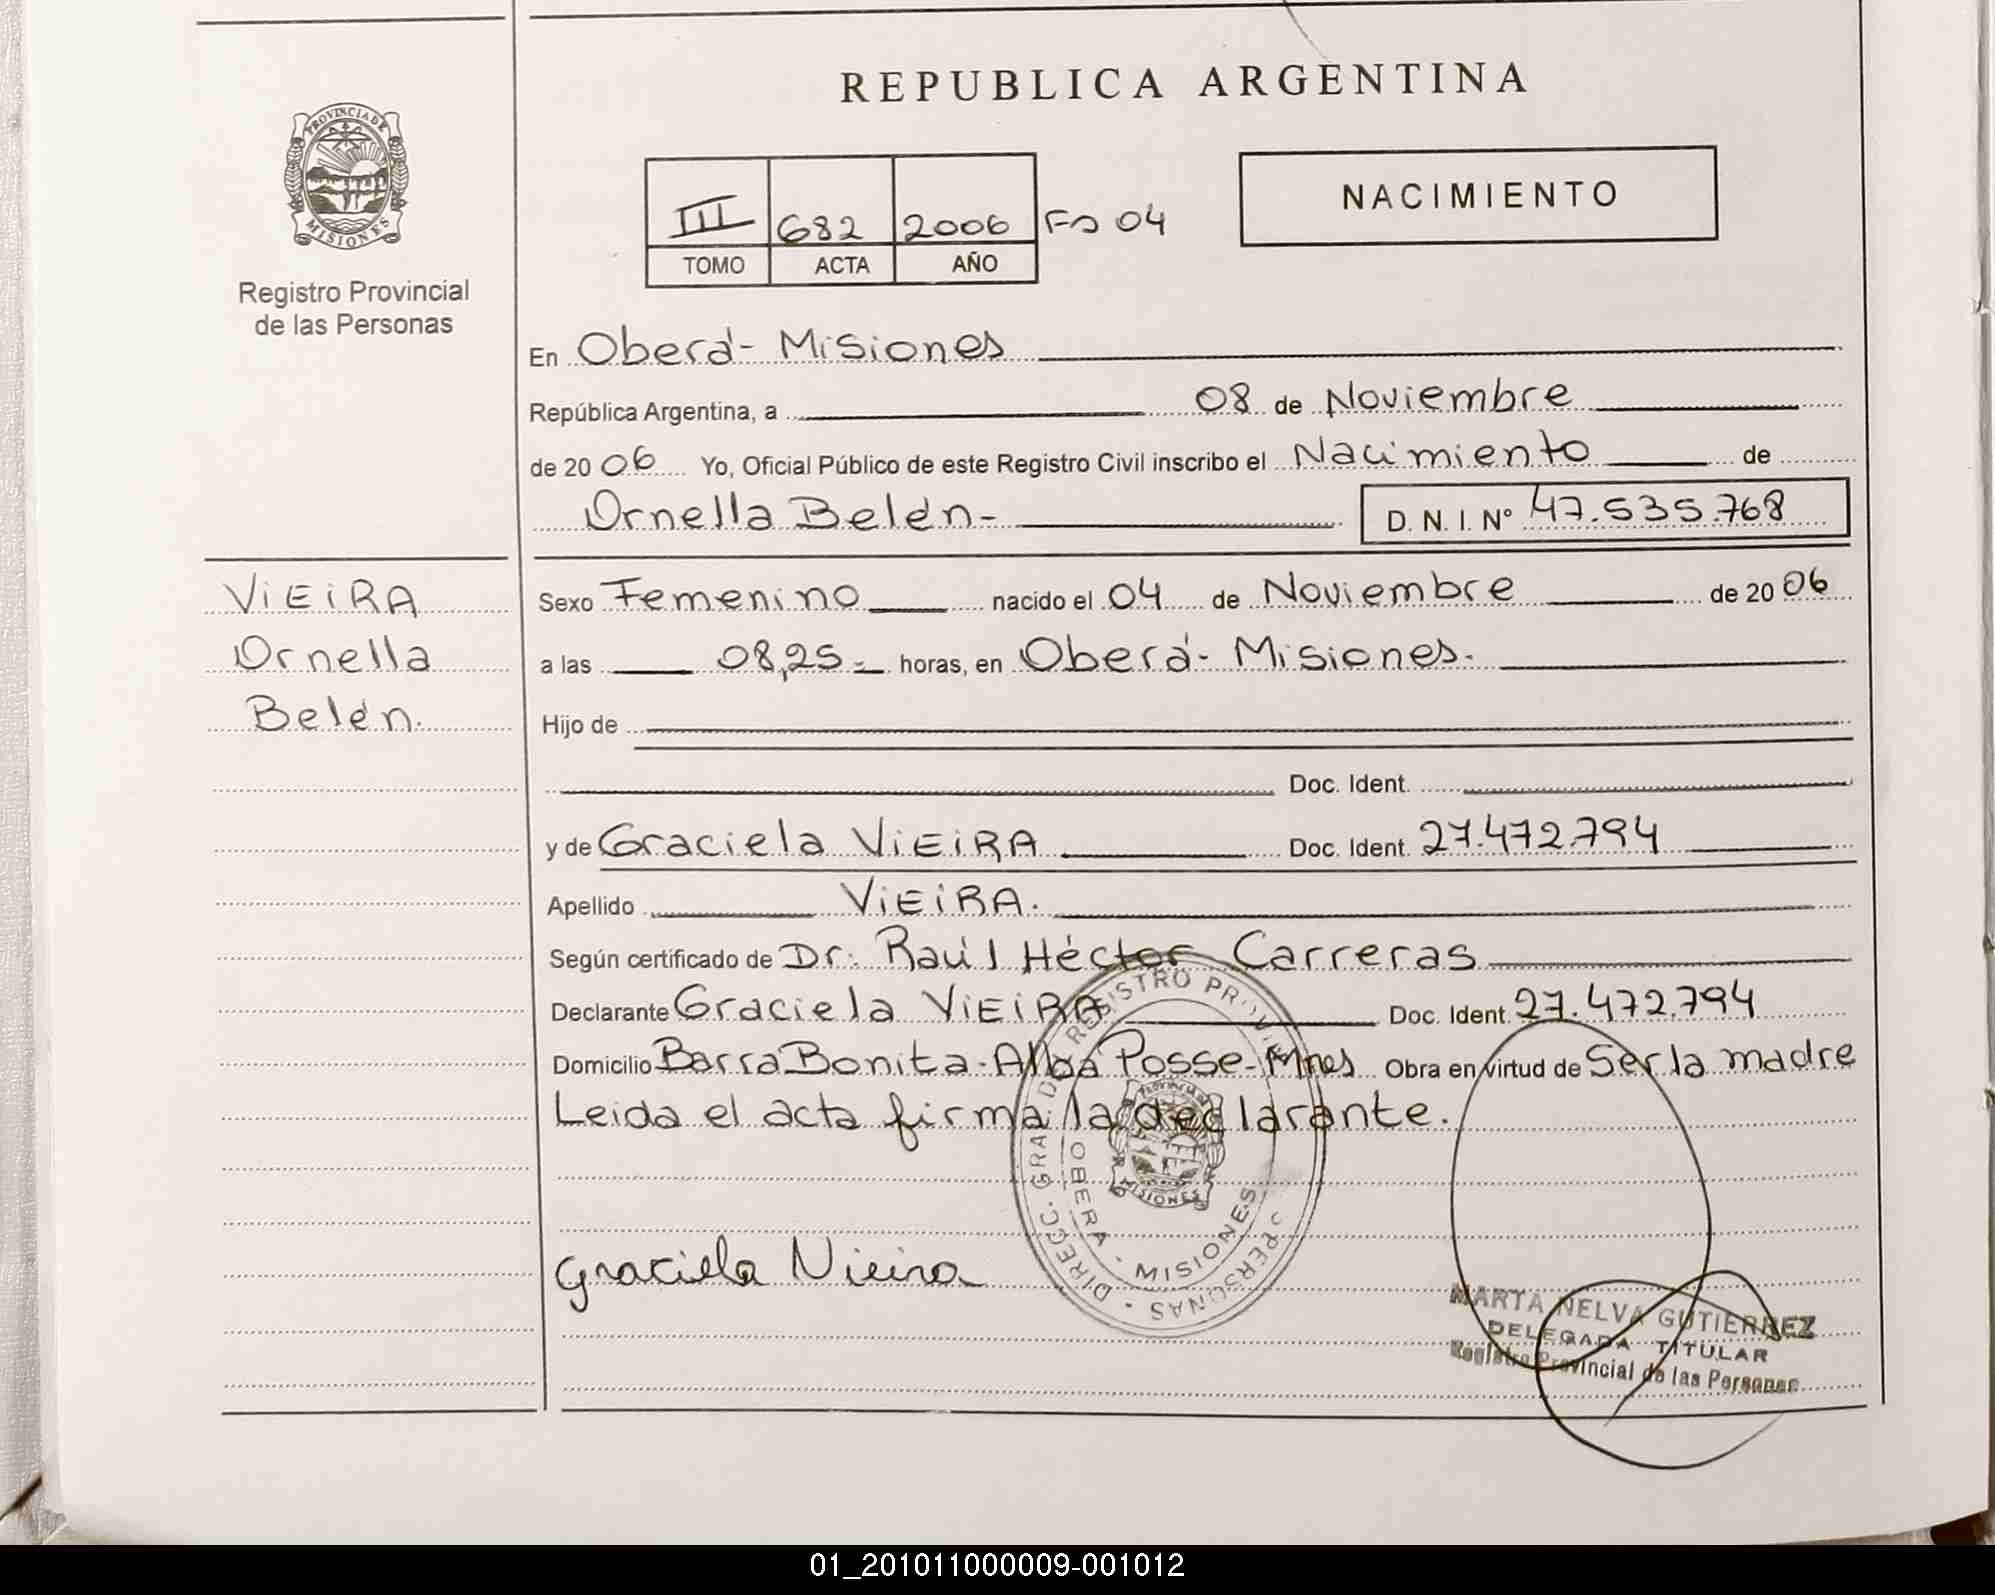 REPUBLICA ARGENTINA
PROVINCIA DE
MISIONES
Registro Provincial
de las Personas
III 682 2006 Fo 04
TOMO ACTA AÑO
NACIMIENTO
En Oberá - Misiones
República Argentina, a 08 de Noviembre
de 2006 Yo, Oficial Público de este Registro Civil inscribo el Nacimiento de
Ornella Belén - D. N. I. N° 47.535.768
VIEIRA
Ornella
Belén.
Sexo Femenino nacido el 04 de Noviembre de 2006
a las 08,25 - horas, en Oberá - Misiones.
Hijo de
Doc. Ident.
y de Graciela VIEIRA Doc. Ident. 27.472.794
Apellido VIEIRA.
Según certificado de Dr. Raúl Héctor Carreras
Declarante Graciela VIEIRA Doc. Ident. 27.472.794
Domicilio Barra Bonita - Alba Posse - Mnes Obra en virtud de Ser la madre
Leida el acta firma la declarante.
DIRECC. GRAL. DE REGISTRO PROVINC. PERSONAS
OBERA - MISIONES
PROVINCIA DE
MISIONES
Graciela Vieira
MARTA NELVA GUTIERREZ
DELEGADA TITULAR
Registro Provincial de las Personas
01_201011000009-001012